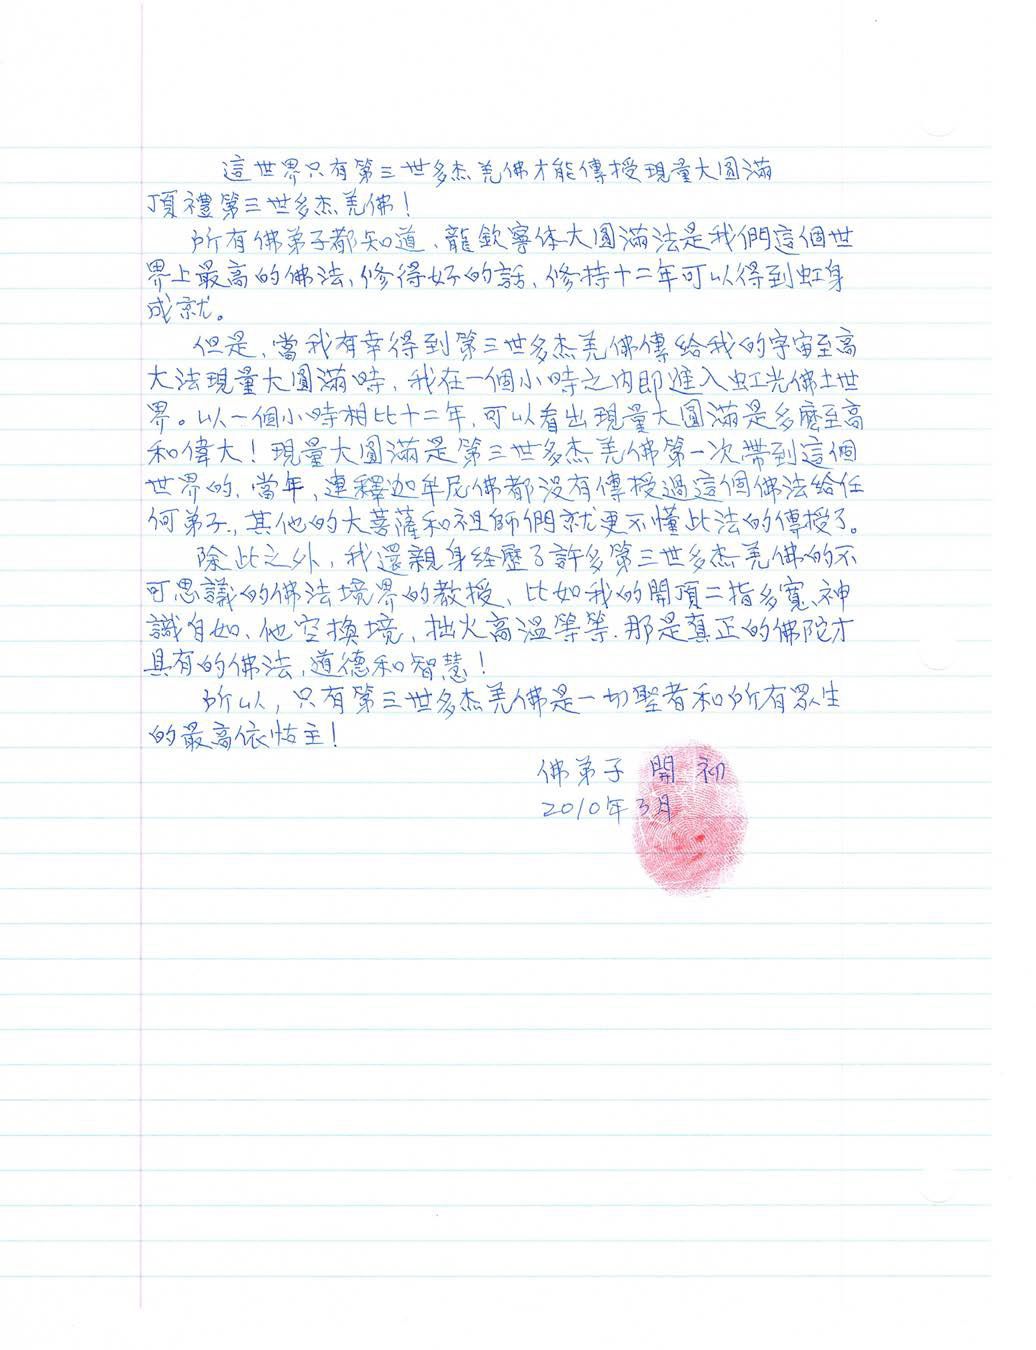 這世界只有第三世多杰羌佛才能傳授現量大圓滿
頂禮第三世多杰羌佛!
所有佛弟子都知道、龍欽寧体大圓滿法是我們這個世
界上最高的佛法,修得好的話,修持十二年可以得到虹身
成就。
但是、當我有幸得到第三世多杰羌佛傳給我的宇宙至高
大法現量大圓滿時,我在一個小時之內即進入虹光佛土世
界。以一個小時相比十二年,可以看出現量大圓滿是多麼至高
和偉大!現量大圓滿是第三世多杰羌佛第一次帶到這個
世界的,當年,連釋迦牟尼佛都沒有傳授過這個佛法給任
何弟子,其他的大菩薩和祖師們就更不懂此法的傳授了。
除此之外,我還親身経歷了許多第三世多杰羌佛的不
可思議的佛法境界的教授、比如我的開頂二指多寬、神
識自如、他空換境,拙火高溫等等.那是真正的佛陀才
具有的佛法,道德和智慧!
所以,只有第三世多杰羌佛是一切聖者和所有眾生
的最高依怙主!
佛弟子 開初
2010年3月